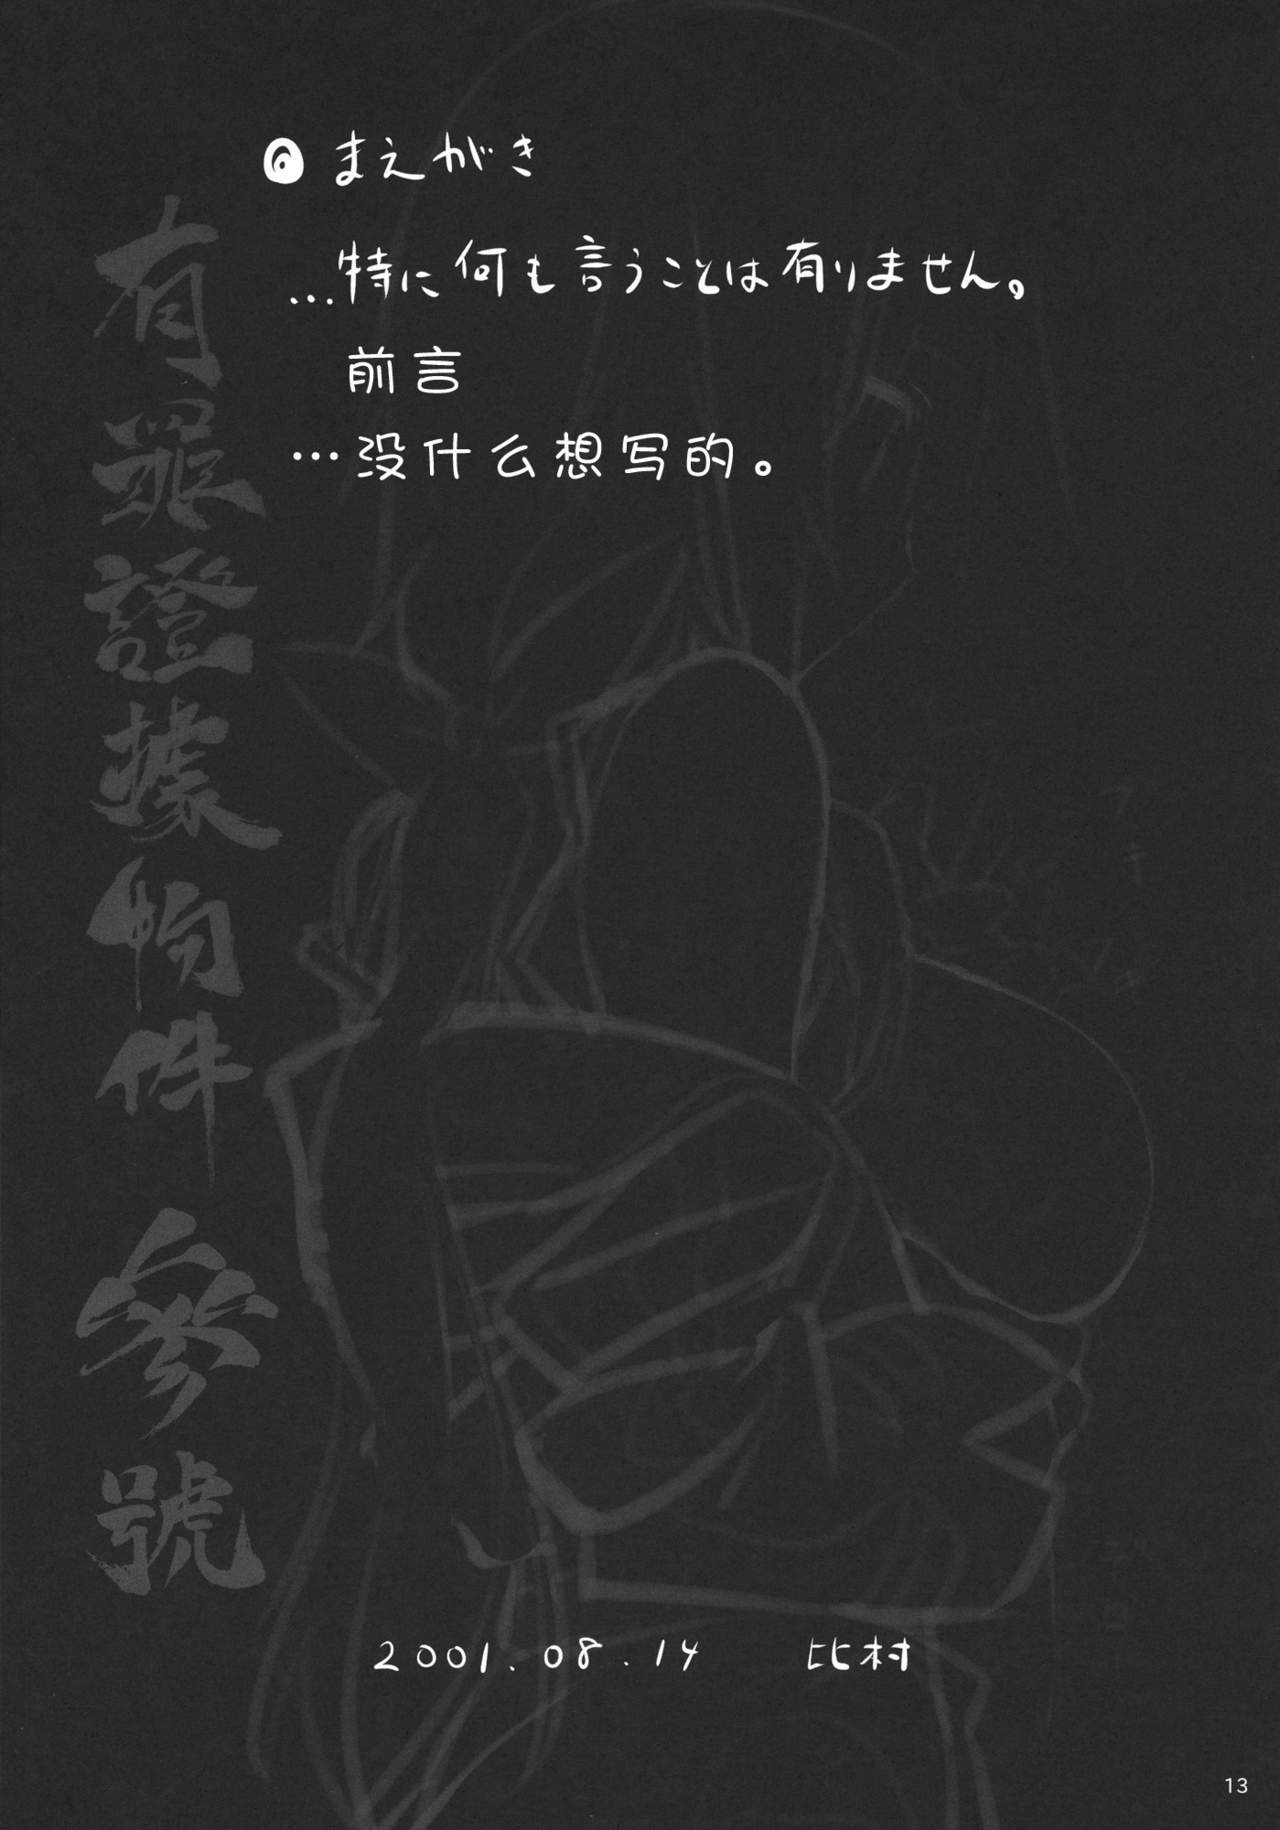 まえがき
…特に何も言うことは有りません。
前言
…没什么想写的。
有罪證據物件 參號
2001.08.14 比村
13